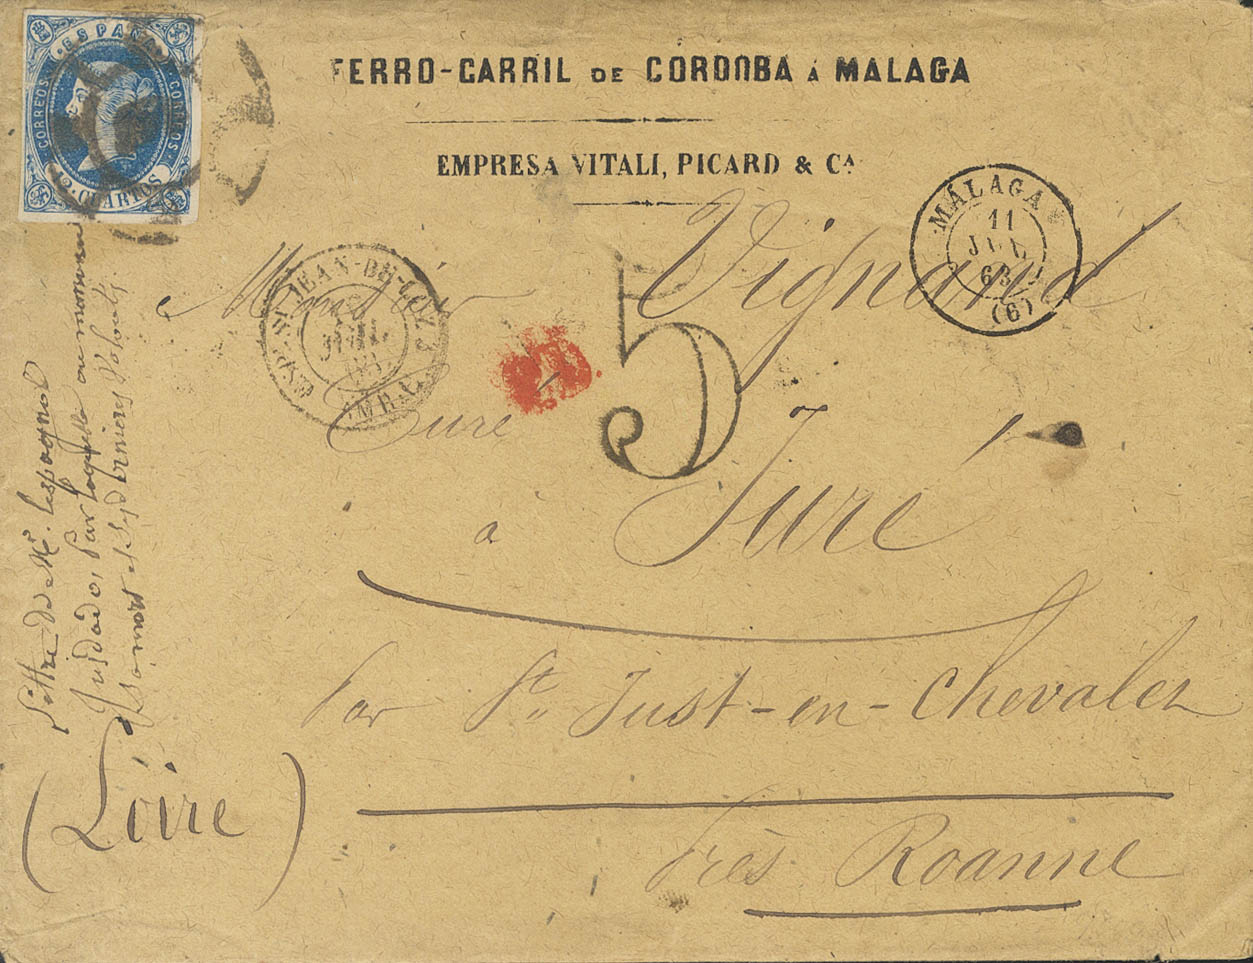 ESPAÑA
CORREOS
CORREOS
12 CUARTOS
FERRO-CARRIL DE CÓRDOBA Á MALAGA
EMPRESA VITALI, PICARD & Cᴬ
MÁLAGA
11
JUL
63
(6)
ESP. ST JEAN-DE-LUZ
JUIL.
63
5
Monsieur Vignand
Curé
à Juré
par St. Just-en-Chevalez
(Loire)
Près Roanne
Lettre de Mr. lespagnol
par laquelle au moment